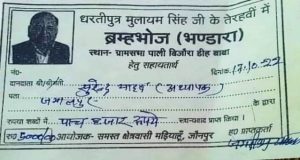 धरतीपुत्र मुलायम सिंह जी के तेरहवीं में
ब्रम्हभोज (भण्डारा)
स्थान- ग्रामसभा पाली बिजौरा डीह बाबा
हेतु सहायतार्थ
क्र०सं० दिनांक 17.10.22
दानदाता श्री/श्रीमती सुरेन्द्र यादव (अध्यापक)
के द्वारा
रुपया शब्दों में पाँच हजार रूपये स्थानवाद प्राप्त किया ।
रु० 5000/- आयोजक- समस्त क्षेत्रवासी मड़ियाहूँ, जौनपुर ह० प्राप्तकर्ता